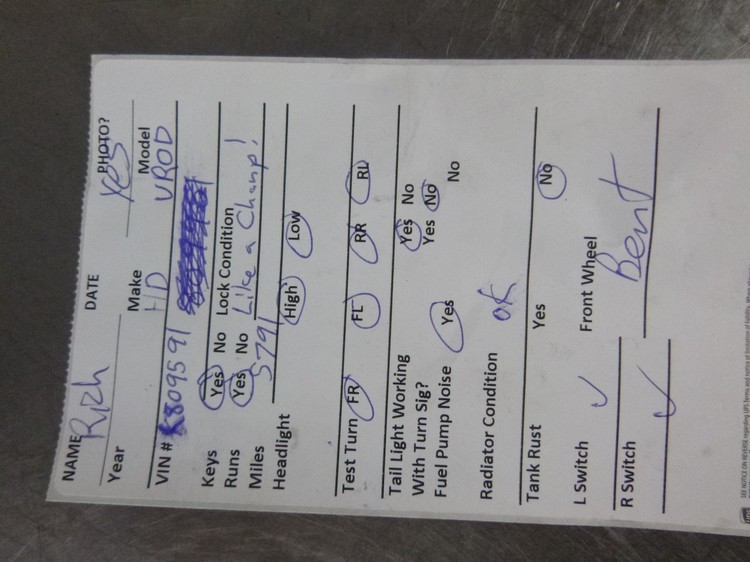 NAME Rich DATE PHOTO? Yes
Year Make HD Model VROD
VIN # K809591
Keys Yes No Lock Condition
Runs Yes No Like a Champ!
Miles 5791
Headlight High Low
Test Turn FR FL RR RL
Tail Light Working Yes No
With Turn Sig? Yes No
Fuel Pump Noise Yes No
Radiator Condition OK
Tank Rust Yes No
L Switch ✓ Front Wheel
R Switch ✓ Bent